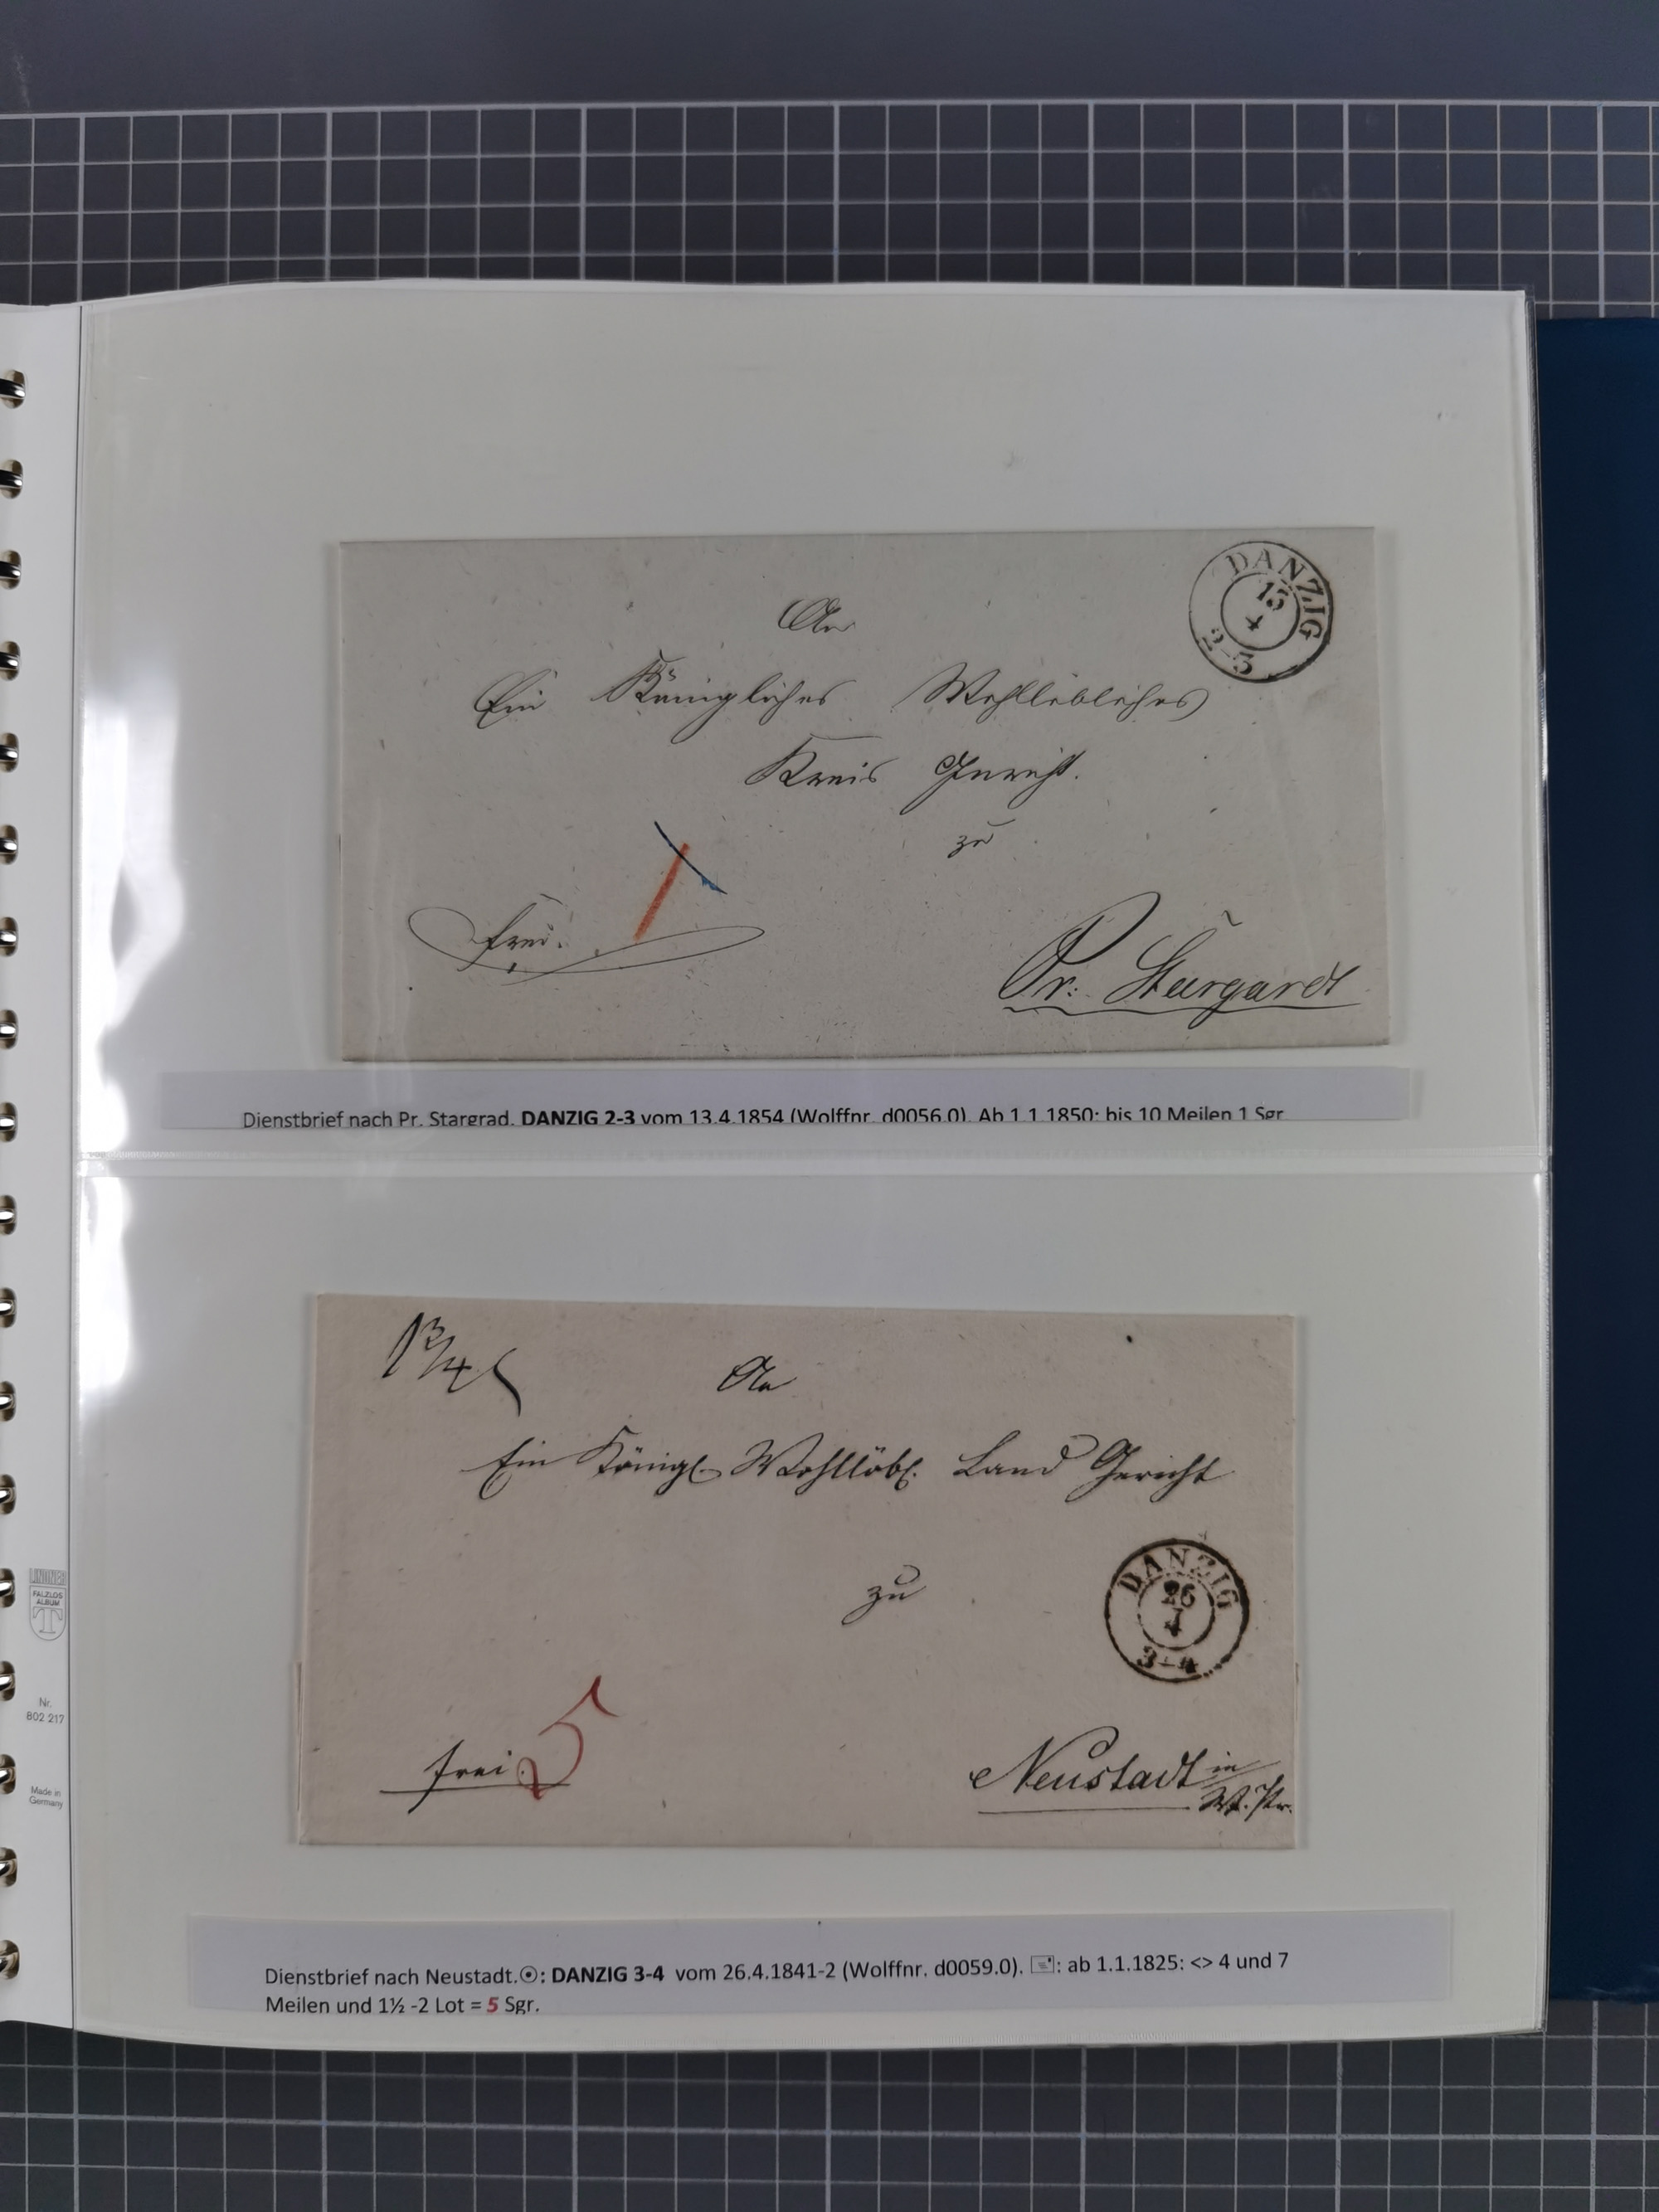 DANZIG
15
4
2-3
An
Ein Königliches Wohllöbliches
Kreis Gericht.
zu
frei.
Pr: Stargardt
Dienstbrief nach Pr. Stargrad. DANZIG 2-3 vom 13.4.1854 (Wolffnr. d0056.0). Ab 1.1.1850: bis 10 Meilen 1 Sgr
An
Ein Königl. Wohllöbl. Land Gericht
zu
DANZIG
26
4
3-4
frei. 5
Neustadt in
W. Pr.
LINDNER
FALZLOS
ALBUM
T
Nr.
802 217
Made in
Germany
Dienstbrief nach Neustadt.☉: DANZIG 3-4 vom 26.4.1841-2 (Wolffnr. d0059.0). : ab 1.1.1825: <> 4 und 7
Meilen und 1½ -2 Lot = 5 Sgr.